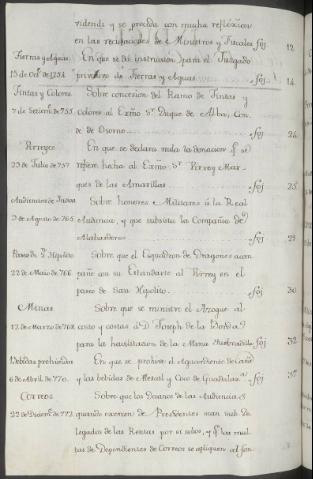 videncia y se proceda con mucha reflexion
en las recusaciones de Ministros y Fiscales fo) 12.
Tierras y Aguas En que se dà instruccion para el Juzgado
15 de Oct.e de 1754 privativo de Tierras y Aguas fo) 14
Tintas y Colores Sobre concesion del Ramo de Tintas y
7 de Setiem.e de 755 colores al Exmo S.r Duque de Alba, Con
de de Osorno fo) 24
Virreyes En que se declara nula la donacion q.e se
23 de Julio de 757 refiere hecha al Exmo S.r Virrey Mar
ques de las Amarillas fo) 25
Audiencia de Sobre honores Militares à la Real
3 de Agosto de 765 Audiencia, y que subsista la Compañia de
Alabarderos fo) 29
Paseo de S. Hipolito Sobre que el Esquadron de Dragones acom
22 de Maio de 766 pañe con su Estandarte al Virrey en el
paseo de San Hipolito fo) 30
Minas Sobre que se ministre el Azogue al
12 de Marzo de 768 costo y costas à D. Joseph de la Borda
para la havilitacion de la Mina fo) 32
Bebidas prohividas En que se prohive el Aguardiente de Caña
6 de Abril de 770 y las bebidas de Mescal y Coco de Guadalax.a fo)
Correos Sobre que los Decanos de las Audiencias
22 de Diciem.e de 772 quando exercen de Presidentes sean sub De
legados de las Rentas por si solos, y q.e las mul
tas de Dependientes de Correos se apliquen al fon